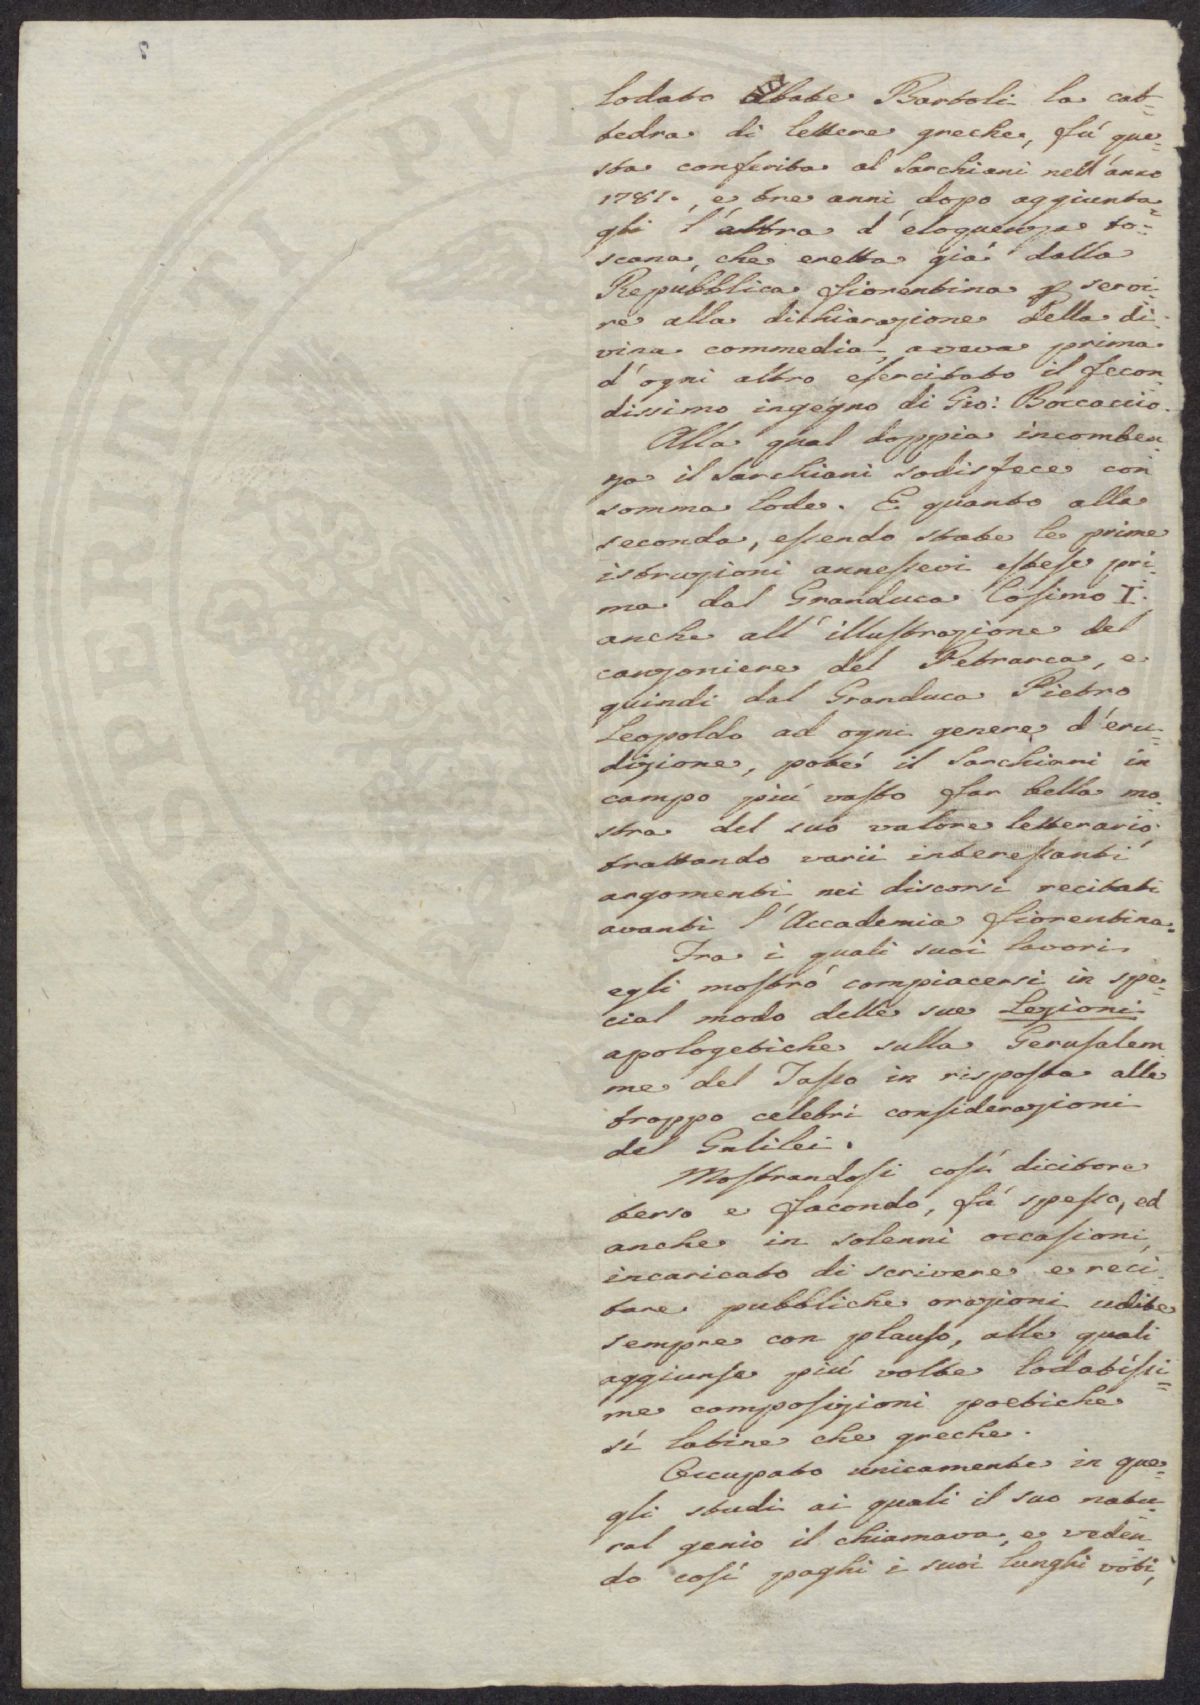 lodato Abate Bartoli la cat-
tedra di lettere greche, fú que-
sta conferita al Sarchiani nell'anno
1781., e tre anni dopo aggiunta-
gli l'altra d'eloquenza to-
scana, che eretta giá dalla
Repubblica fiorentina p servi-
re alla dichiarazione della di-
vina commedia, aveva prima
d'ogni altro esercitato il fecon-
dissimo ingegno di Gio: Boccaccio.
Alla qual doppia incomben-
za il Sarchiani sodisfece con
somma lode. E quanto alla
seconda, essendo state le prime
istruzioni annessevi estese pri-
ma dal Granduca Cosimo I.
anche all'illustrazione del
canzoniere del Petrarca, e
quindi dal Granduca Pietro
Leopoldo ad ogni genere d'eru-
dizione, poté il Sarchiani in
campo piú vasto far bella mo-
stra del suo valore letterario
trattando varii interessanti
argomenti nei discorsi recitati
avanti l'Accademia fiorentina.
Fra i quali suoi lavori
egli mostró compiacersi in spe-
cial modo delle sue Lezioni
apologetiche sulla Gerusalem-
me del Tasso in risposta alle
troppo celebri considerazioni
del Galilei.
Mostrandosi cosí dicitore
terso e facondo, fú spesso, ed
anche in solenni occasioni,
incaricato di scrivere e reci-
tare pubbliche orazioni udite
sempre con plauso, alle quali
aggiunse piú volte lodatissi-
me composizioni poetiche
sí latine che greche.
Occupato unicamente in que-
gli studi ai quali il suo natu-
ral genio il chiamava, e veden-
do cosí paghi i suoi lunghi voti,